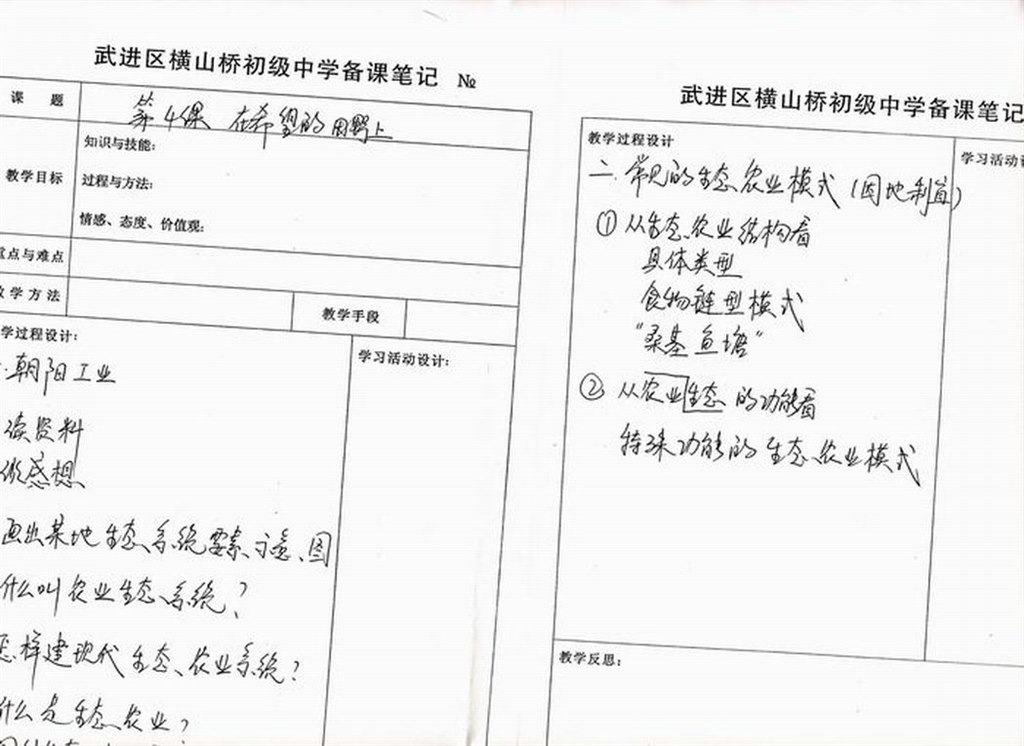 武进区横山桥初级中学备课笔记 №
课 题
第4课 在希望的田野上
教学目标
知识与技能:
过程与方法:
情感、态度、价值观:
重点与难点
教学方法
教学手段
学过程设计:
学习活动设计:
朝阳工业
读资料
谈感想
画出某地生态系统要素示意图
什么叫农业生态系统?
怎样建现代生态农业系统?
什么是生态农业?
武进区横山桥初级中学备课笔记
教学过程设计
学习活动设
二、常见的生态农业模式(因地制宜)
① 从生态农业结构看
具体类型
食物链型模式
"桑基鱼塘"
② 从农业生态的功能看
特殊功能的生态农业模式
教学反思: